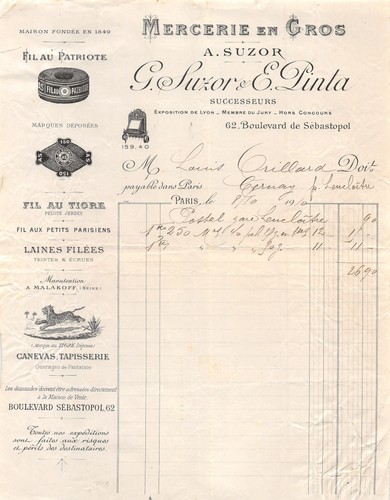 MAISON FONDÉE EN 1849
MERCERIE EN GROS
A. SUZOR
G. Suzor & E. Pinta
SUCCESSEURS
EXPOSITION DE LYON - MEMBRE DU JURY - HORS CONCOURS
62, Boulevard de Sébastopol
FIL AU PATRIOTE
MARQUES DÉPOSÉES
159.40
M Louis Orillard Doit
payable dans Paris Cernay p. Lencloître
PARIS, le 8/10 1910
FIL AU TIGRE
PETITS JERSEY
FIL AUX PETITS PARISIENS
LAINES FILÉES
TEINTES & ÉCRUES
Manutention
A MALAKOFF (SEINE)
Postal gare Lencloître 90
1 Ko 250
12
1 Ko 11 11
26 90
(Marque au TIGRE Déposée)
CANEVAS, TAPISSERIE
Ouvrages de Fantaisie
Les demandes doivent être adressées directement
à la Maison de Vente
BOULEVARD SÉBASTOPOL, 62
Toutes nos expéditions
sont faites aux risques
et périls des destinataires.